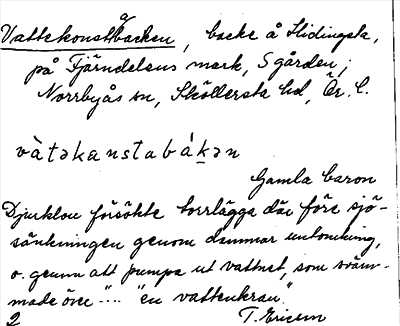 Vattekonstabacken, backe å Hidingsta,
på Fjärndelens mark, S gården;
Norrbyås sn, Sköllersta hd, Ör. l.
vàtəkanstabákən
Gamla baron
Djurklou försökte torrlägga där före sjö-
sänkningen genom dammar
o. genom att pumpa ut vattnet, som sväm-
made över "... "en vattenkran".
2 T. Ericson